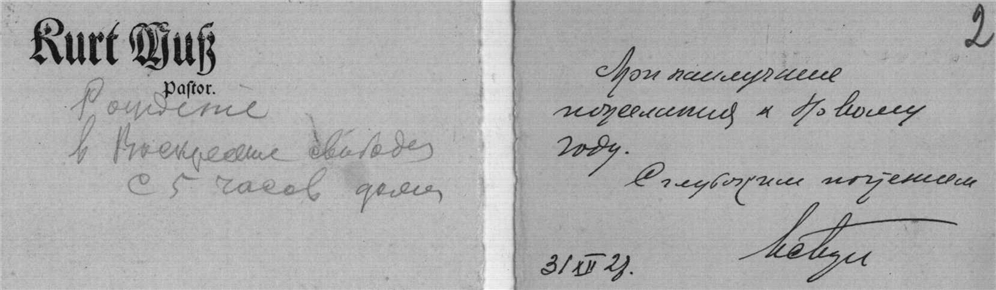 Kurt Muß
Pastor.
Рождение
в Воскресение свободен
с 5 часов дома
2
Мои наилучшие
пожелания к Новому
году.
С глубоким почтением
31 XII 28.